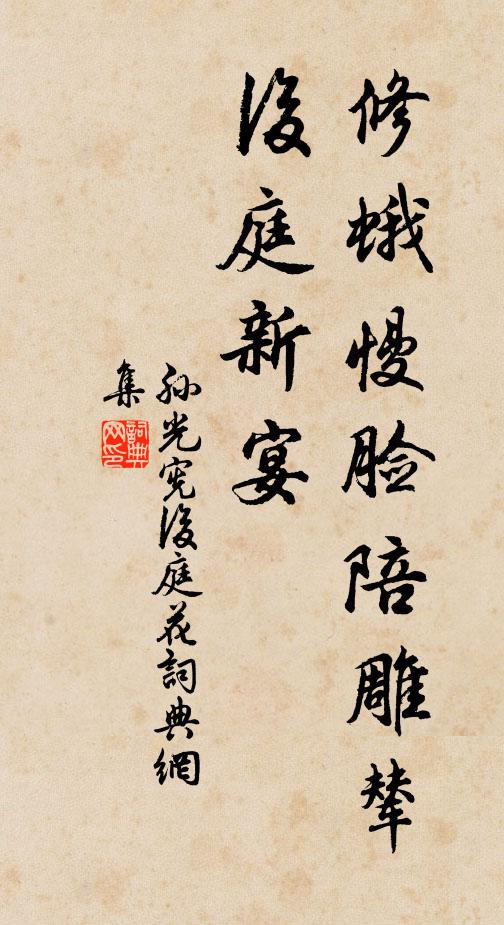 修蛾慢脸陪雕辇
後庭新宴
孙光宪後庭花詞典網
集
詞典
网印